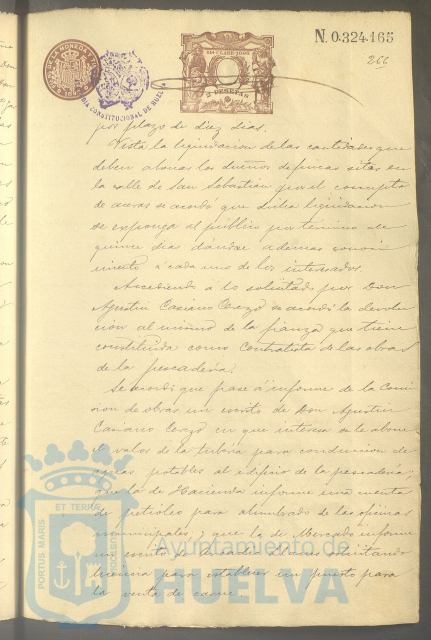 N. 0.324.165
266
2 PESETAS
CONSTITUCIONAL DE HUELVA
por plazo de diez dias.
Vista la liquidacion de las cantidades que
deben abonar los dueños de fincas sitas en
la calle de San Sebastián por el concepto
de aceras se acordó que dicha liquidacion
se exponga al público por termino de
quince dias dándose ademas conoci
miento á cada uno de los interesados.
Accediendo á lo solicitado por Don
Agustin Casiano Cerzo se acordó la devolu
cion al mismo de la fianza que tiene
constituida como Contratista de las obras
de la pescaderia.
Se acordó que pase á informe de la Comi
sion de obras un escrito de Don Agustin
Casiano Cerzo en que interesa se le abone
el valor de la tuberia para conduccion de
aguas potables al edificio de la pescaderia;
que la de Hacienda informe una cuenta
de petroleo para alumbrado de las oficinas
municipales; y que la de Mercado informe
un escrito de solicitando
licencia para establecer un puesto para
la venta de carne.
PORTUS MARIS ET TERRAE
Ayuntamiento de
HUELVA